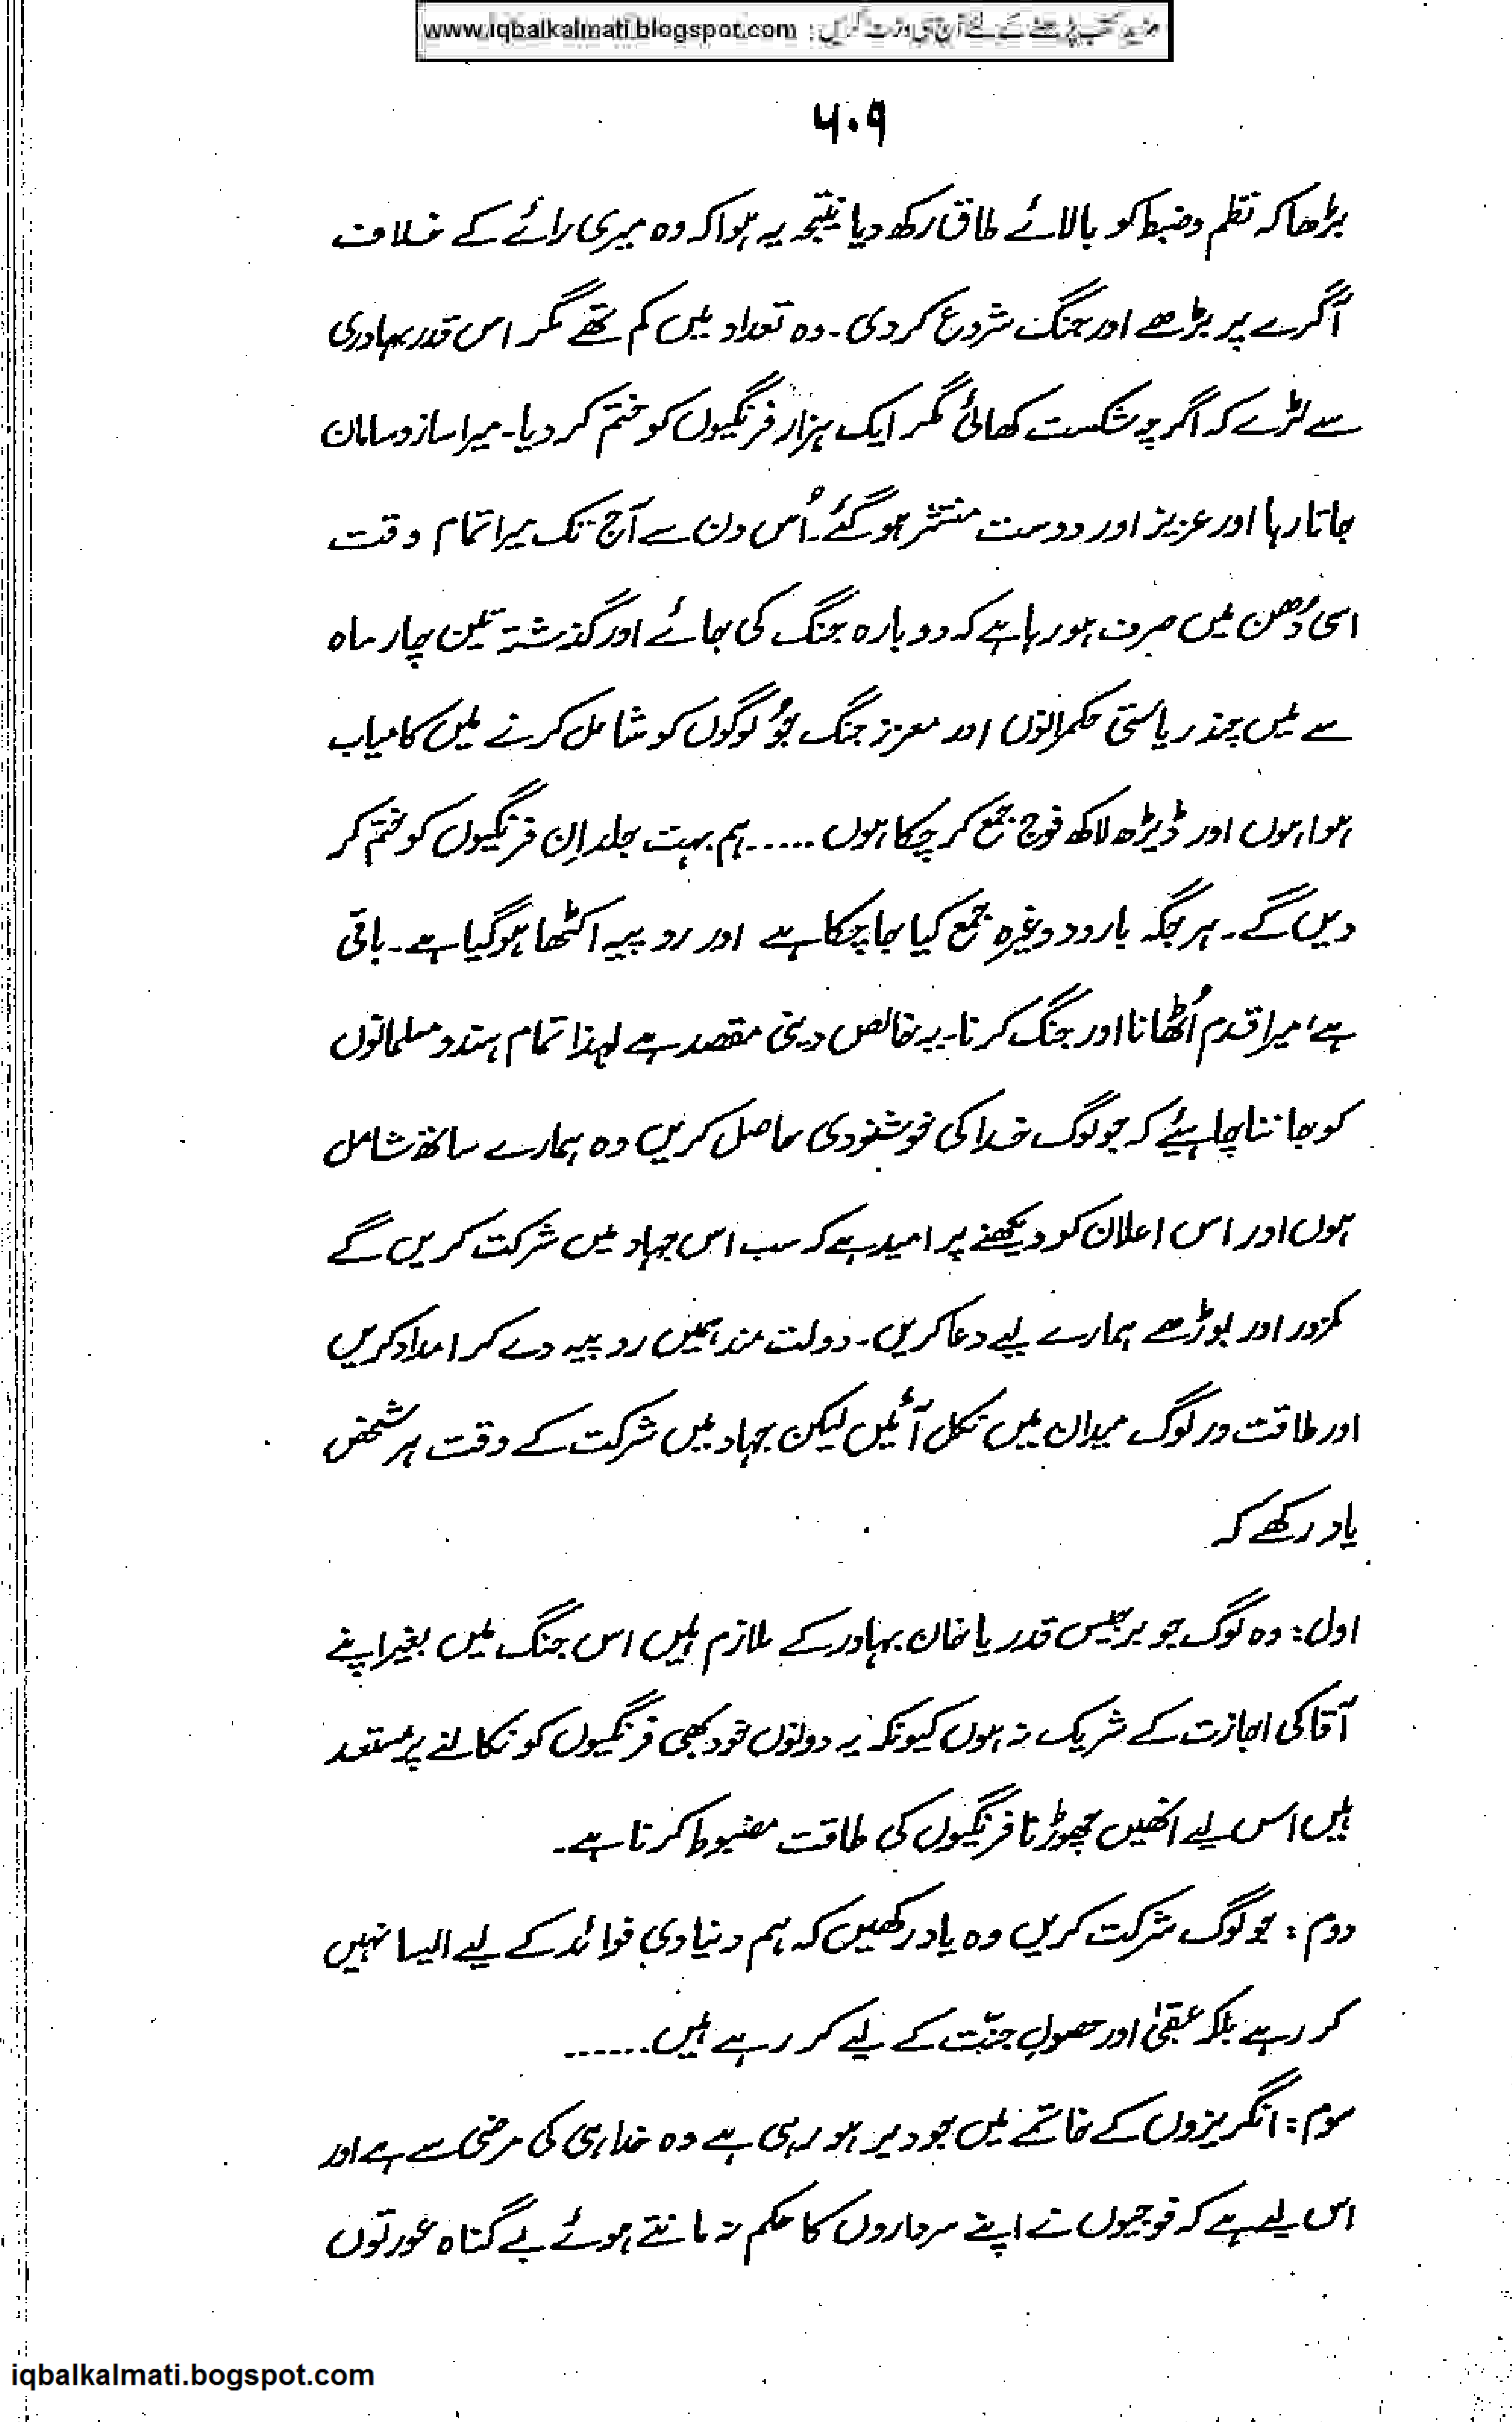 مزید کتب پڑھنے کے لئے آج ہی وزٹ کریں : www.iqbalkalmati.blogspot.com
۵۰۹
بڑھا کہ نظم و ضبط کو بالائے طاق رکھ دیا نتیجہ یہ ہوا کہ وہ میری رائے کے خلاف
آگرے پر بڑھے اور جنگ شروع کر دی۔ وہ تعداد میں کم تھے مگر اس قدر بہادری
سے لڑے کہ اگرچہ شکست کھائی مگر ایک ہزار فرنگیوں کو ختم کر دیا۔ میرا ساز و سامان
جاتا رہا اور عزیز اور دوست منتشر ہو گئے۔ اُس دن سے آج تک میرا تمام وقت
اسی دُھن میں صرف ہو رہا ہے کہ دوبارہ جنگ کی جائے اور گذشتہ تین چار ماہ
سے میں چند ریاستی حکمرانوں اور معزز جنگ جُو لوگوں کو شامل کرنے میں کامیاب
ہوا ہوں اور ڈیڑھ لاکھ فوج جمع کر چکا ہوں ..... ہم بہت جلد اِن فرنگیوں کو ختم کر
دیں گے۔ ہر جگہ بارود وغیرہ جمع کیا جا چکا ہے اور روپیہ اکٹھا ہو گیا ہے۔ باقی
ہے، میرا قدم اُٹھانا اور جنگ کرنا۔ یہ خالص دینی مقصد ہے لہذا تمام ہندو مسلمانوں
کو جاننا چاہیئے کہ جو لوگ خدا کی خوشنودی حاصل کریں وہ ہمارے ساتھ شامل
ہوں اور اس اعلان کو دیکھنے پر امید ہے کہ سب اس جہاد میں شرکت کریں گے
کمزور اور بوڑھے ہمارے لیے دعا کریں۔ دولت مند ہمیں روپیہ دے کر امداد کریں
اور طاقت ور لوگ میدان میں نکل آئیں لیکن جہاد میں شرکت کے وقت ہر شخص
یاد رکھے کہ
اول: وہ لوگ جو برجیس قدر یا خان بہادر کے ملازم ہیں اس جنگ میں بغیر اپنے
آقا کی اجازت کے شریک نہ ہوں کیونکہ یہ دونوں خود بھی فرنگیوں کو نکالنے پر مستعد
ہیں اس لیے انھیں چھوڑنا فرنگیوں کی طاقت مضبوط کرنا ہے۔
دوم: جو لوگ شرکت کریں وہ یاد رکھیں کہ ہم دنیاوی فوائد کے لیے ایسا نہیں
کر رہے بلکہ عقبیٰ اور حصولِ جنّت کے لیے کر رہے ہیں......
سوم: انگریزوں کے خاتمے میں جو دیر ہو رہی ہے وہ خدا ہی کی مرضی سے ہے اور
اس لیے ہے کہ فوجیوں نے اپنے سرداروں کا حکم نہ مانتے ہوئے بے گناہ عورتوں
iqbalkalmati.bogspot.com